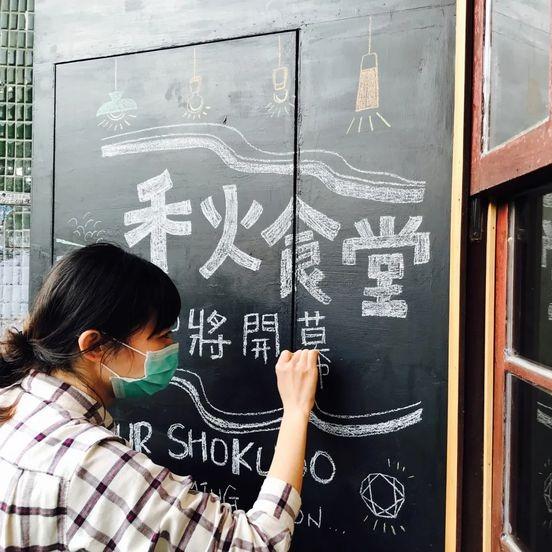 秋食堂
將開幕
UR SHOKUDO
ING ON...